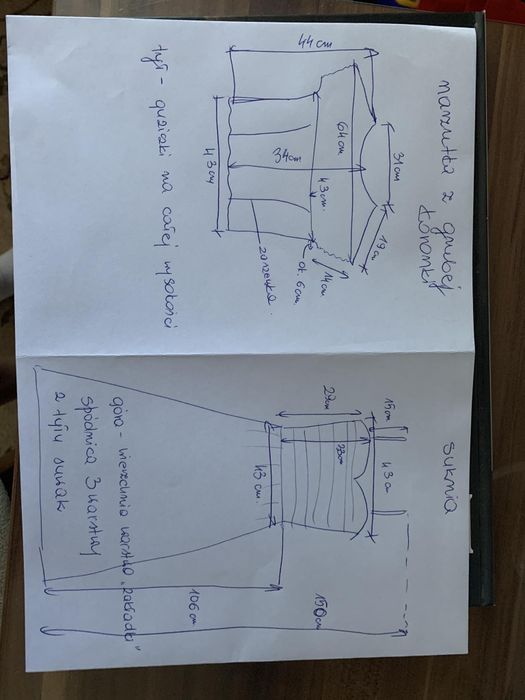 narzutka z grubej
koronki
44 cm
31 cm
19 cm
64 cm
34 cm
43 cm.
14 cm
ok. 6 cm
zaszewka.
43 cm
tył - guziczki na całej wysokości
suknia
15 cm
43 cm
22 cm
33 cm
43 cm.
106 cm
150 cm
góra - wierzchnia warstwa „zakładki”
spódnica 3 warstwy
z tyłu suwak